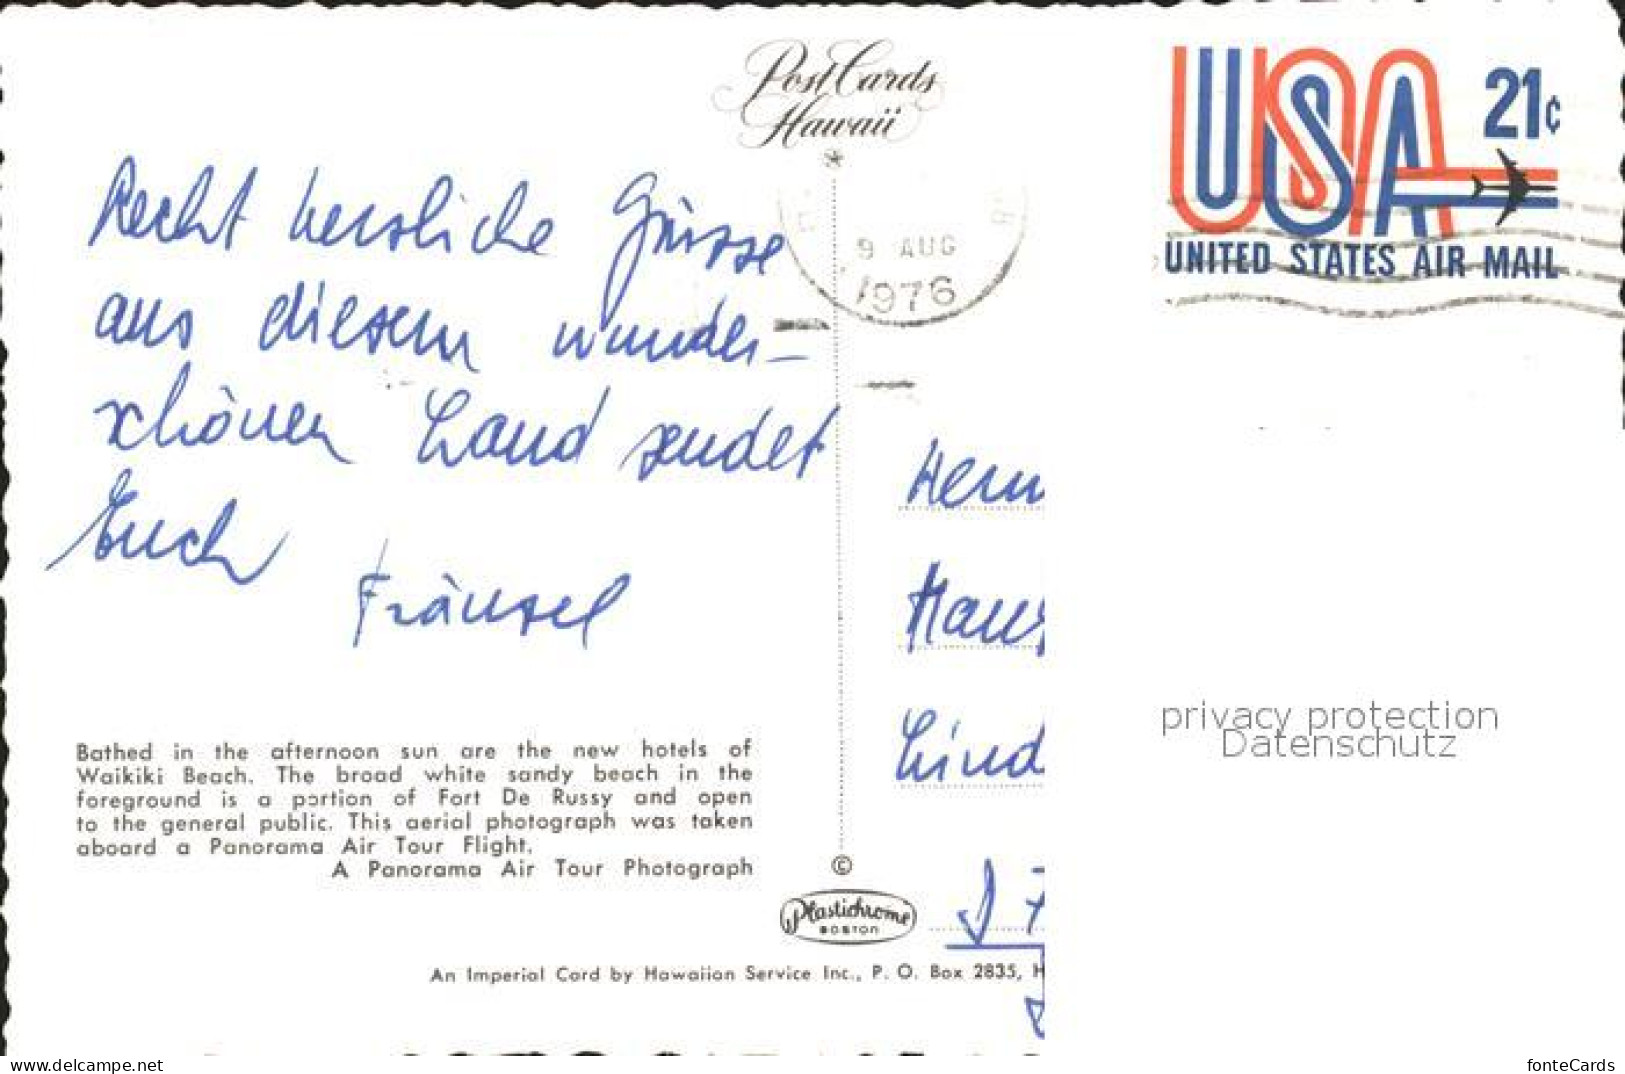 Post Cards
Hawaii
USA 21¢
UNITED STATES AIR MAIL
9 AUG
1976
Recht herzliche Grüsse
aus diesem wunder-
schönen Land sendet
Euch
Fränzel
Bathed in the afternoon sun are the new hotels of
Waikiki Beach. The broad white sandy beach in the
foreground is a portion of Fort De Russy and open
to the general public. This aerial photograph was taken
aboard a Panorama Air Tour Flight.
A Panorama Air Tour Photograph
©
Plastichrome
BOSTON
An Imperial Card by Hawaiian Service Inc., P. O. Box 2835, H
Lind
privacy protection
Datenschutz
www.delcampe.net
fonteCards